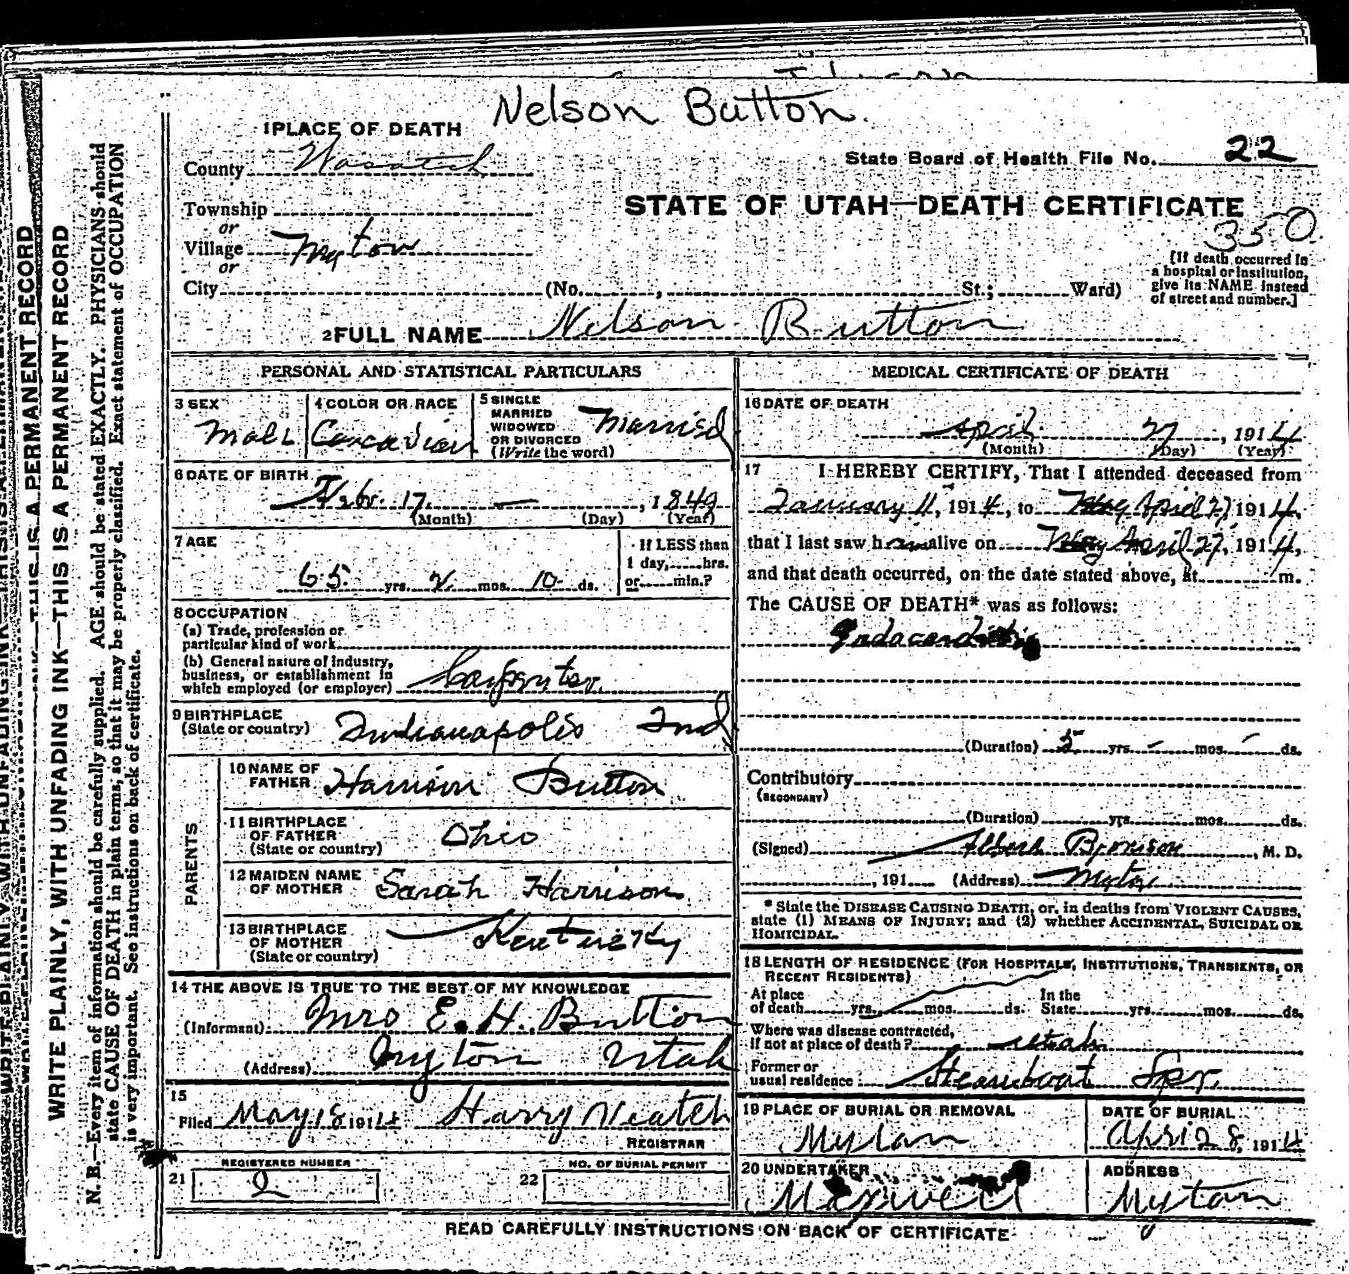 Nelson Button.
1 PLACE OF DEATH
County Wasatch
State Board of Health File No. 22
Township
STATE OF UTAH—DEATH CERTIFICATE
350
or
Village Myton
or
City (No. , St.; Ward)
[If death occurred in
a hospital or institution,
give its NAME instead
of street and number.]
2 FULL NAME Nelson Button
PERSONAL AND STATISTICAL PARTICULARS
3 SEX
Male
4 COLOR OR RACE
5 SINGLE
MARRIED
WIDOWED
OR DIVORCED
(Write the word)
Married
6 DATE OF BIRTH
Febr. 17 — , 1849
(Month) (Day) (Year)
7 AGE
65 yrs. 2 mos. 10 ds.
If LESS than
1 day, hrs.
or min.?
8 OCCUPATION
(a) Trade, profession or
particular kind of work
(b) General nature of industry,
business, or establishment in
which employed (or employer) Carpenter
9 BIRTHPLACE
(State or country) Indianapolis Ind
PARENTS
10 NAME OF
FATHER Harrison Button
11 BIRTHPLACE
OF FATHER
(State or country) Ohio
12 MAIDEN NAME
OF MOTHER Sarah Harrison
13 BIRTHPLACE
OF MOTHER
(State or country) Kentucky
14 THE ABOVE IS TRUE TO THE BEST OF MY KNOWLEDGE
(Informant) Mrs E. H. Button
(Address) Myton Utah
15
Filed May 18 1914 Harry Veatch
REGISTRAR
REGISTERED NUMBER
21 2
NO. OF BURIAL PERMIT
22
MEDICAL CERTIFICATE OF DEATH
16 DATE OF DEATH
April 27, 1914
(Month) (Day) (Year)
17 I HEREBY CERTIFY, That I attended deceased from
January 11, 1914, to April 27, 1914,
that I last saw h im alive on April 27, 1914,
and that death occurred, on the date stated above, at m.
The CAUSE OF DEATH* was as follows:
(Duration) 5 yrs. - mos. - ds.
Contributory
(SECONDARY)
(Duration) yrs. mos. ds.
(Signed) Albert , M. D.
, 191 (Address) Myton
* State the DISEASE CAUSING DEATH, or, in deaths from VIOLENT CAUSES,
state (1) MEANS OF INJURY; and (2) whether ACCIDENTAL, SUICIDAL OR
HOMICIDAL.
18 LENGTH OF RESIDENCE (FOR HOSPITALS, INSTITUTIONS, TRANSIENTS, OR
RECENT RESIDENTS)
At place
of death yrs. mos. ds.
In the
State yrs. mos. ds.
Where was disease contracted,
if not at place of death? Utah
Former or
usual residence Steamboat Spr.
19 PLACE OF BURIAL OR REMOVAL
Mytan
DATE OF BURIAL
April 28, 1914
20 UNDERTAKER
Maxwell
ADDRESS
Mytan
READ CAREFULLY INSTRUCTIONS ON BACK OF CERTIFICATE
WRITE PLAINLY, WITH UNFADING INK—THIS IS A PERMANENT RECORD
N. B.—Every item of information should be carefully supplied. AGE should be stated EXACTLY. PHYSICIANS should
state CAUSE OF DEATH in plain terms, so that it may be properly classified. Exact statement of OCCUPATION
is very important. See instructions on back of certificate.